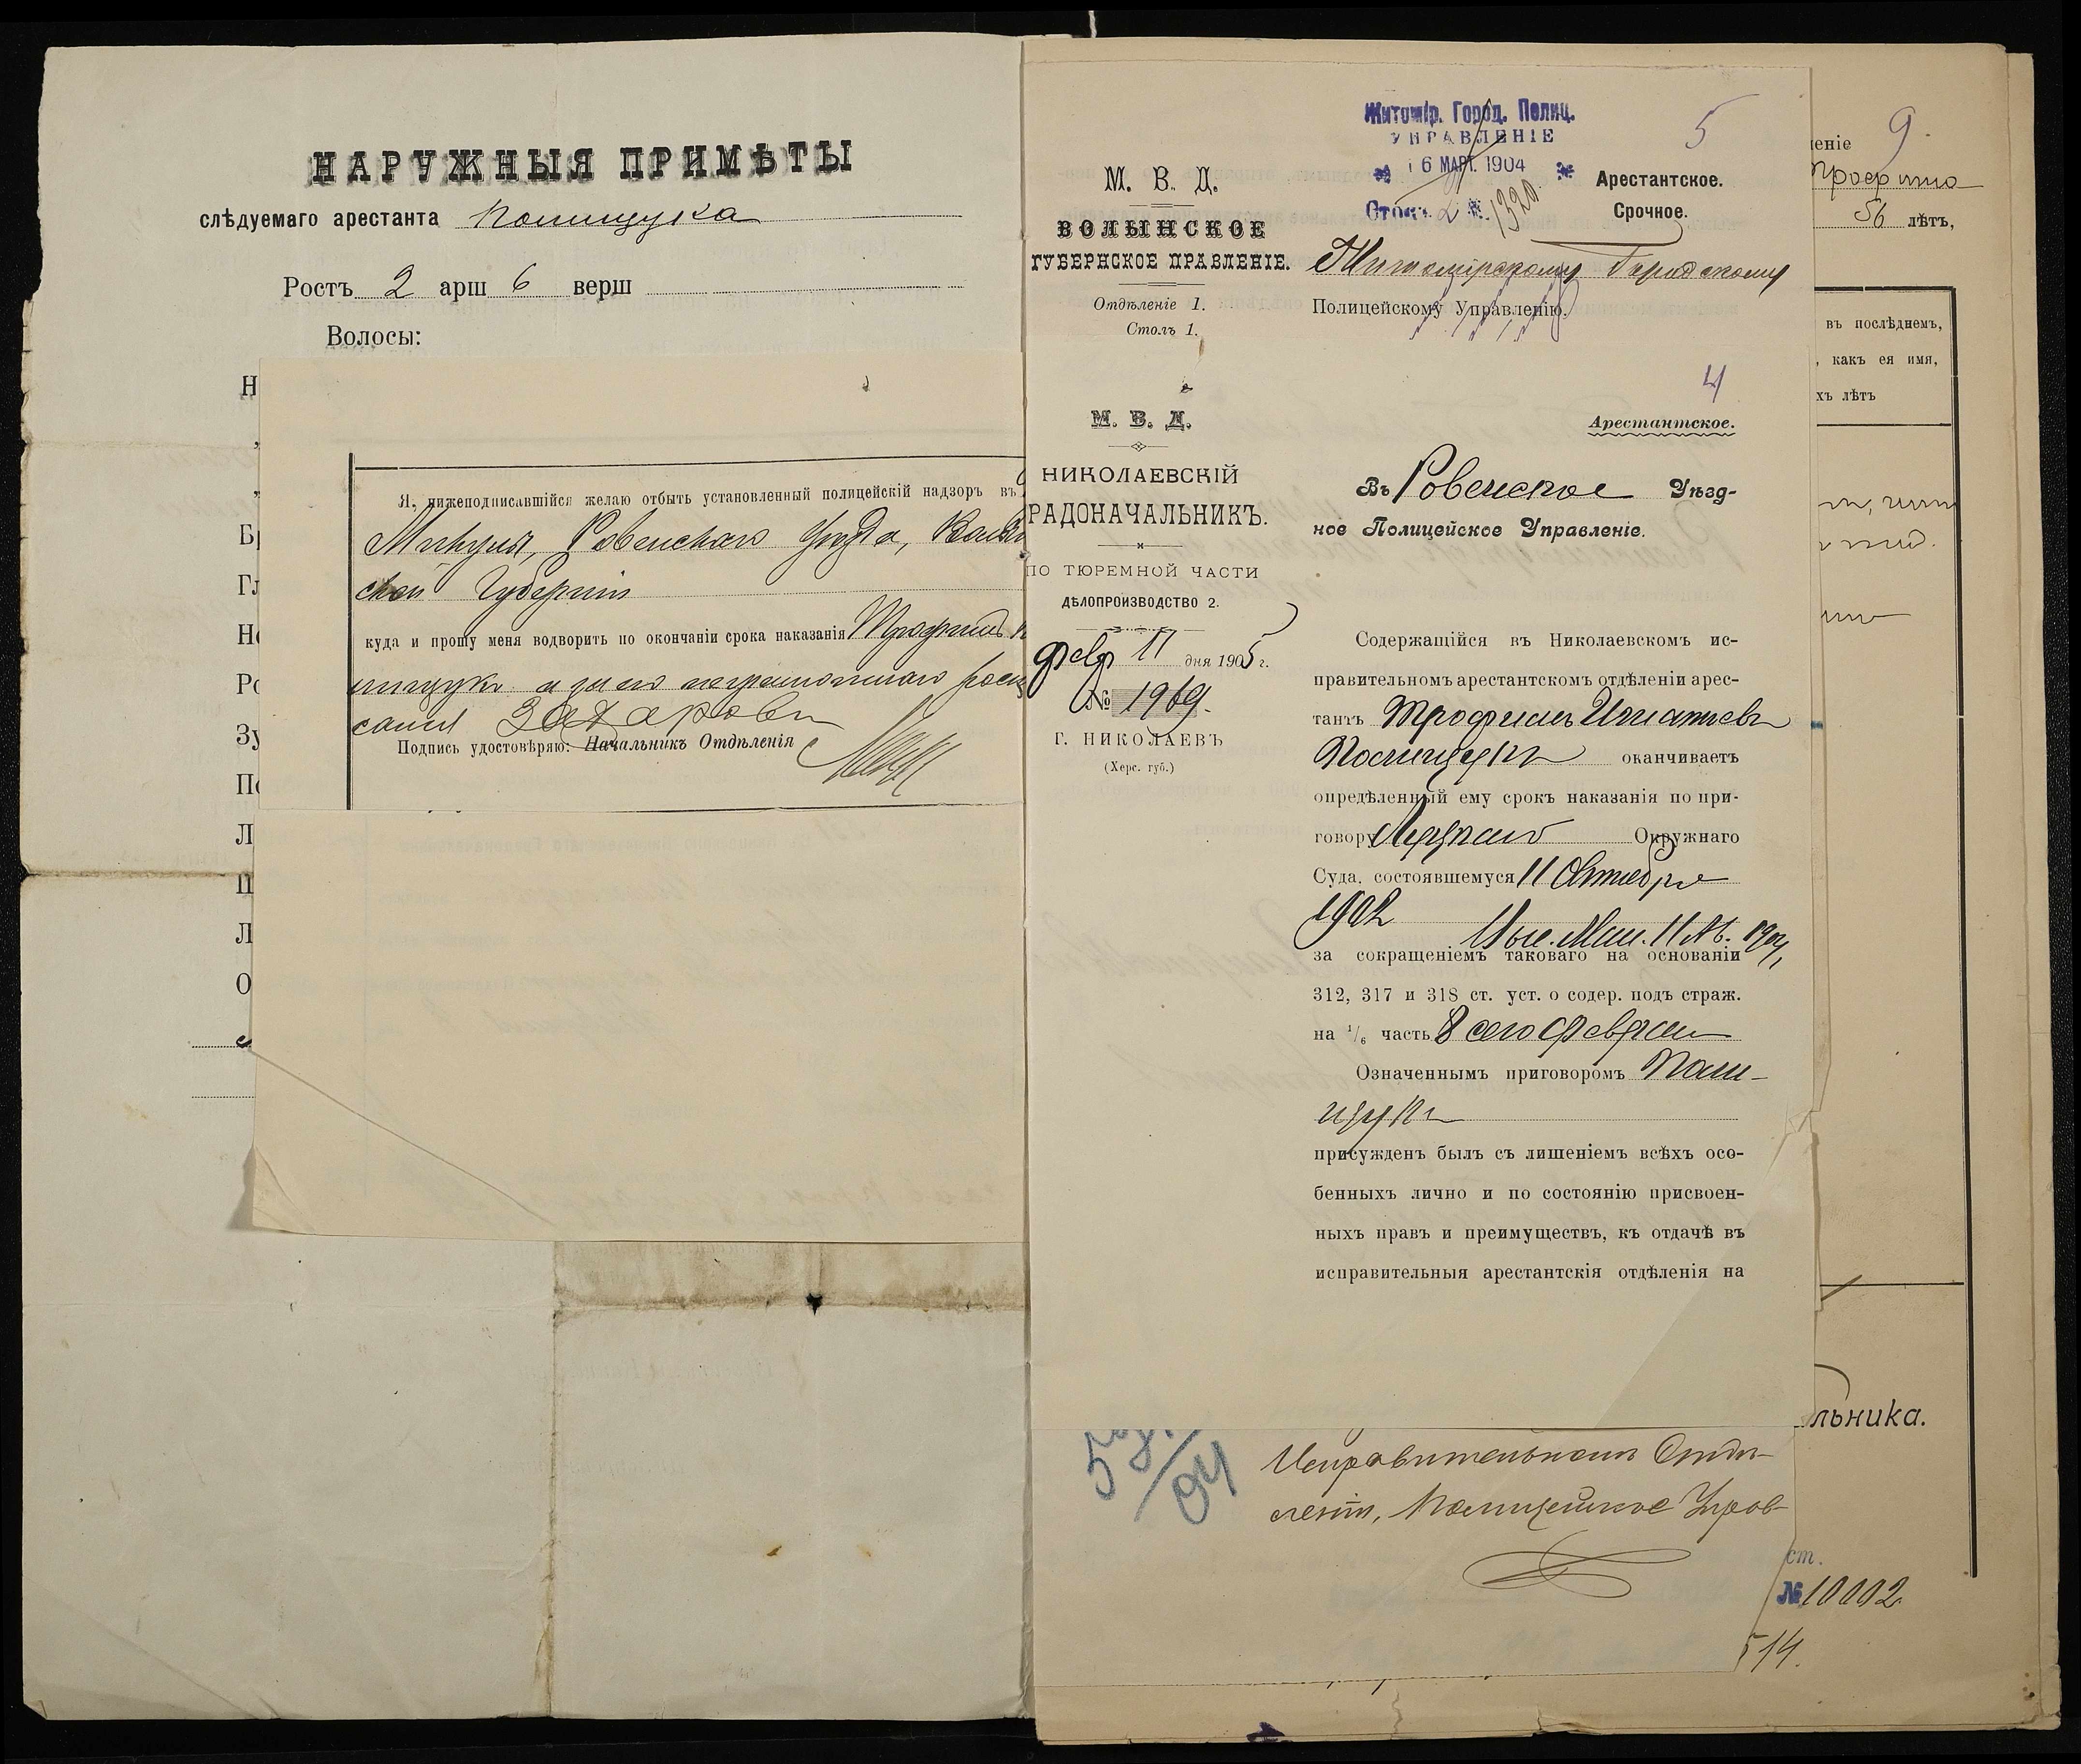 НАРУЖНЫЯ ПРИМѢТЫ
слѣдуемаго арестанта Полищука
Ростъ 2 арш 6 верш
Волосы:
Я, нижеподписавшійся желаю отбыть установленный полицейскій надзоръ въ
Ровенскаго уѣзда, Волын
ской Губерніи
куда и прошу меня водворить по окончаніи срока наказанія Трофимъ
лищукъ а за его неграмотнаго роспи
сался Захаровъ
Подпись удостовѣряю: Начальникъ Отдѣленія
Житомір. Город. Полиц.
УПРАВЛЕНІЕ
16 МАРТ. 1904
Столъ 2 № 1320
5
М. В. Д.
ВОЛЫНСКОЕ
ГУБЕРНСКОЕ ПРАВЛЕНІЕ.
Отдѣленіе 1.
Столъ 1.
Арестантское.
Срочное.
Житомірскому Городскому
Полицейскому Управленію.
4
М. В. Д.
НИКОЛАЕВСКІЙ
РАДОНАЧАЛЬНИКЪ.
ПО ТЮРЕМНОЙ ЧАСТИ
ДѢЛОПРОИЗВОДСТВО 2.
Февр 11 дня 1905 г.
№ 1969.
Г. НИКОЛАЕВЪ
(Херс. губ.)
Арестантское.
Въ Ровенское Уѣзд-
ное Полицейское Управленіе.
Содержащійся въ Николаевскомъ ис-
правительномъ арестантскомъ отдѣленіи арес-
тантъ Трофимъ Игнатьевъ
Полищукъ оканчиваетъ
опредѣленный ему срокъ наказанія по при-
говору Луцкаго Окружнаго
Суда, состоявшемуся 11 Октября
1902
за сокращеніемъ таковаго на основаніи
312, 317 и 318 ст. уст. о содер. подъ страж.
на 1/6 часть 8 сего Февраля
Означеннымъ приговоромъ Поли-
щукъ
присужденъ былъ съ лишеніемъ всѣхъ осо-
бенныхъ лично и по состоянію присвоен-
ныхъ правъ и преимуществъ, къ отдачѣ въ
исправительныя арестантскія отдѣленія на
Исправительномъ Отдѣ-
леніи, Полицейское Управ-
9.
еніе
56 лѣтъ,
въ послѣднемъ,
, какъ ея имя,
хъ лѣтъ
льника.
ст.
№ 10002
514.